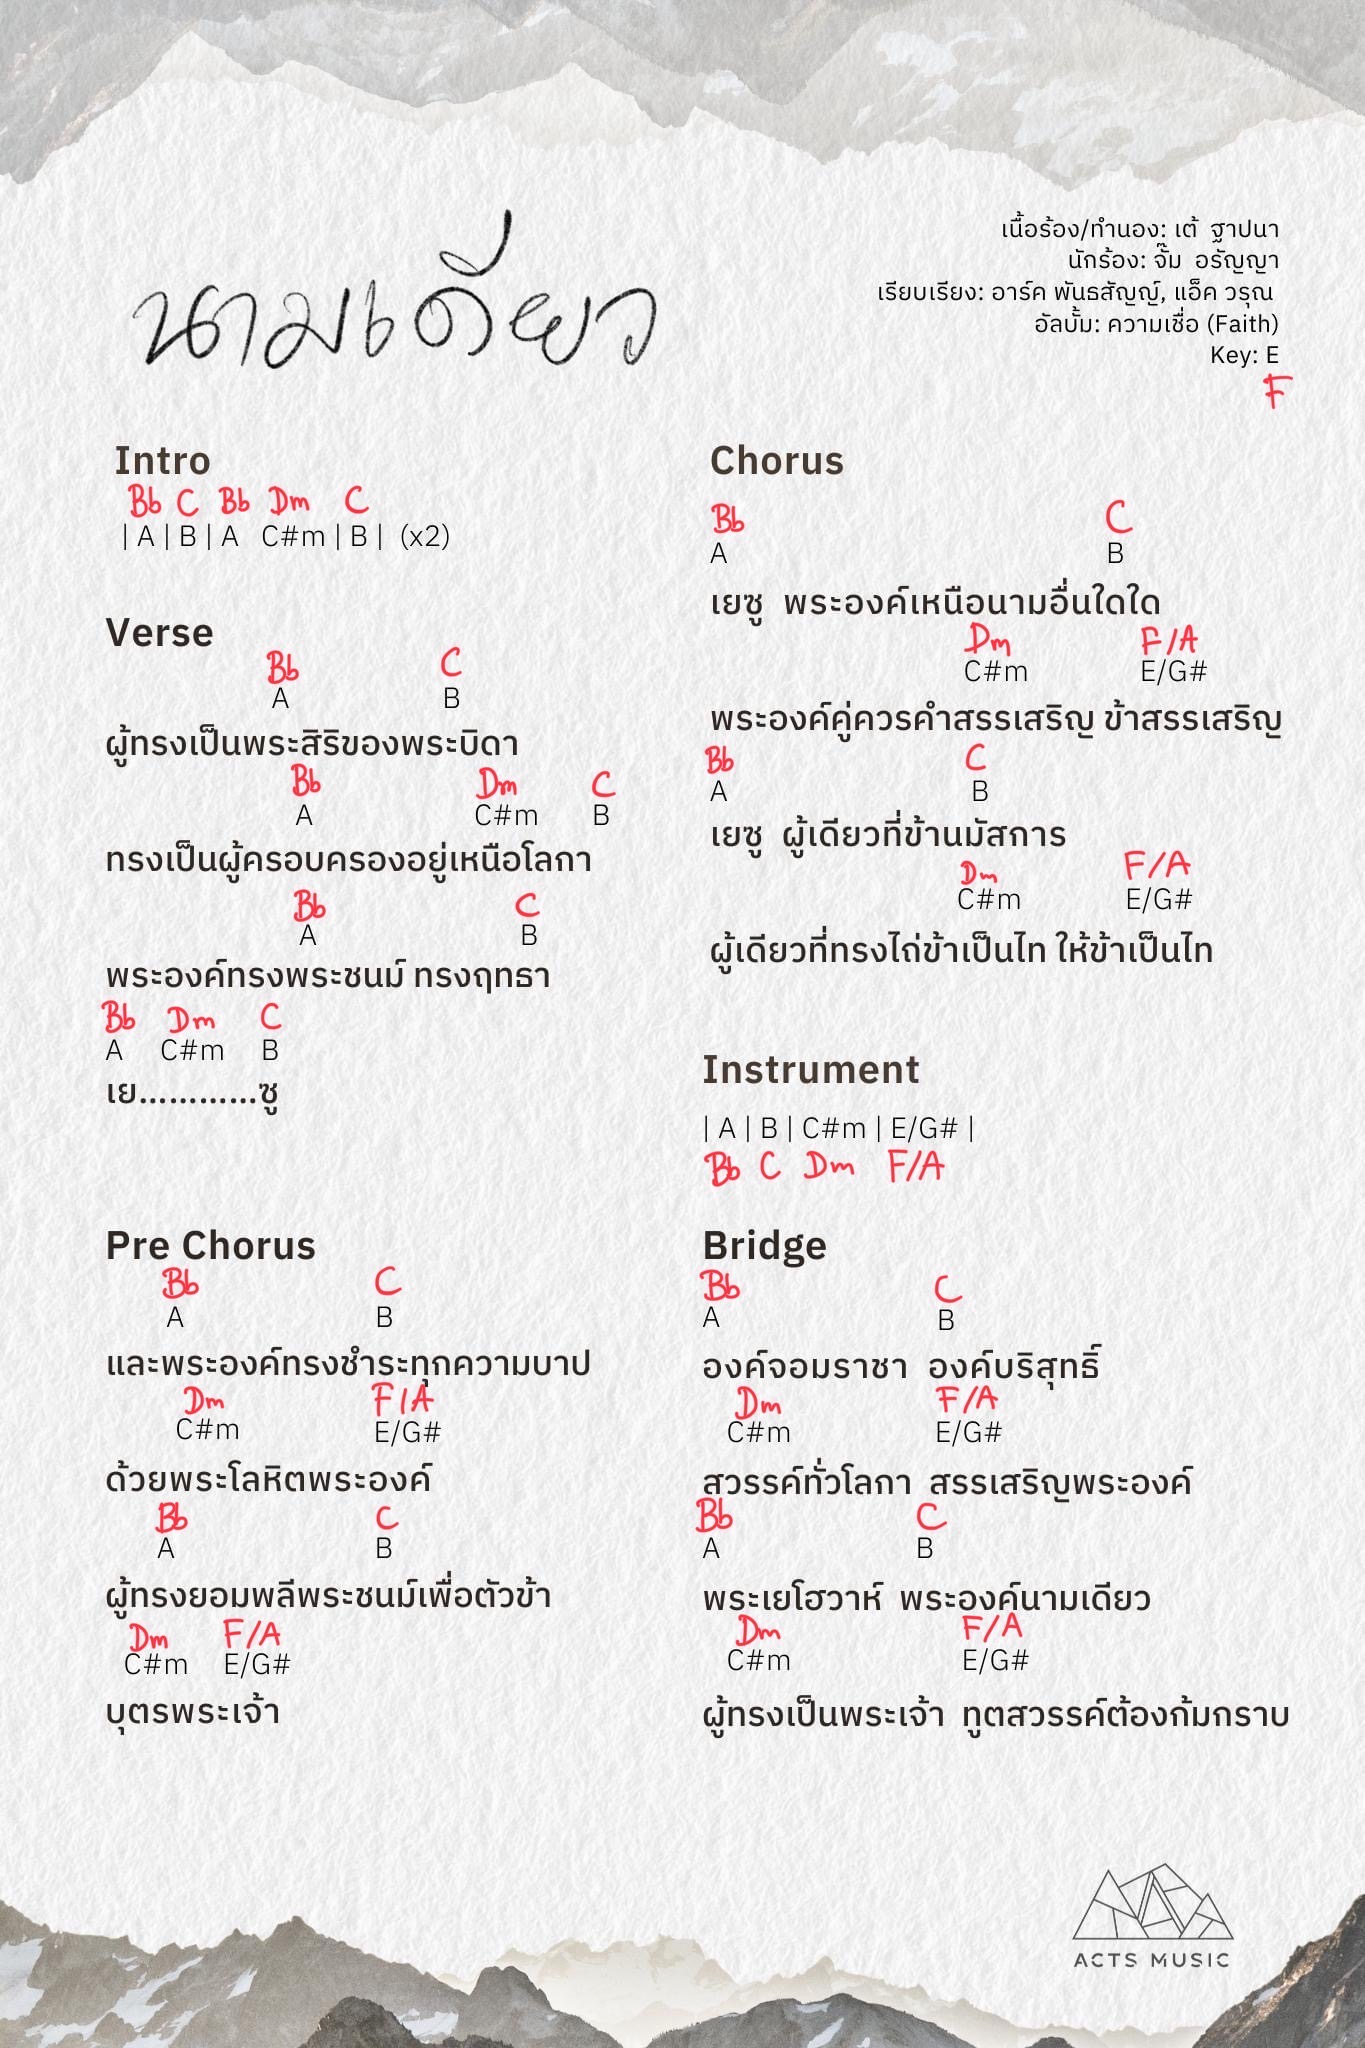 นามเดียว
เนื้อร้อง/ทำนอง: เต้ ฐาปนา
นักร้อง: จั๊ม อรัญญา
เรียบเรียง: อาร์ค พันธสัญญ์, แอ็ค วรุณ
อัลบั้ม: ความเชื่อ (Faith)
Key: E
F
Intro
Bb C Bb Dm C
| A | B | A C#m | B | (x2)
Verse
Bb C
A B
ผู้ทรงเป็นพระสิริของพระบิดา
Bb Dm C
A C#m B
ทรงเป็นผู้ครอบครองอยู่เหนือโลกา
Bb C
A B
พระองค์ทรงพระชนม์ ทรงฤทธา
Bb Dm C
A C#m B
เย............ซู
Pre Chorus
Bb C
A B
และพระองค์ทรงชำระทุกความบาป
Dm F/A
C#m E/G#
ด้วยพระโลหิตพระองค์
Bb C
A B
ผู้ทรงยอมพลีพระชนม์เพื่อตัวข้า
Dm F/A
C#m E/G#
บุตรพระเจ้า
Chorus
Bb C
A B
เยซู พระองค์เหนือนามอื่นใดใด
Dm F/A
C#m E/G#
พระองค์คู่ควรคำสรรเสริญ ข้าสรรเสริญ
Bb C
A B
เยซู ผู้เดียวที่ข้านมัสการ
Dm F/A
C#m E/G#
ผู้เดียวที่ทรงไถ่ข้าเป็นไท ให้ข้าเป็นไท
Instrument
| A | B | C#m | E/G# |
Bb C Dm F/A
Bridge
Bb C
A B
องค์จอมราชา องค์บริสุทธิ์
Dm F/A
C#m E/G#
สวรรค์ทั่วโลกา สรรเสริญพระองค์
Bb C
A B
พระเยโฮวาห์ พระองค์นามเดียว
Dm F/A
C#m E/G#
ผู้ทรงเป็นพระเจ้า ทูตสวรรค์ต้องก้มกราบ
ACTS MUSIC